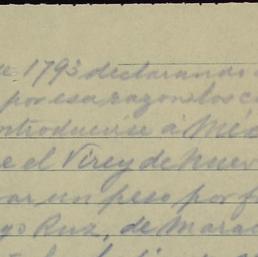 1793 declarando
por esa razon los
introducirse á Méx
e el Virey de Nuev
un peso por f
go Ruz, de Marac